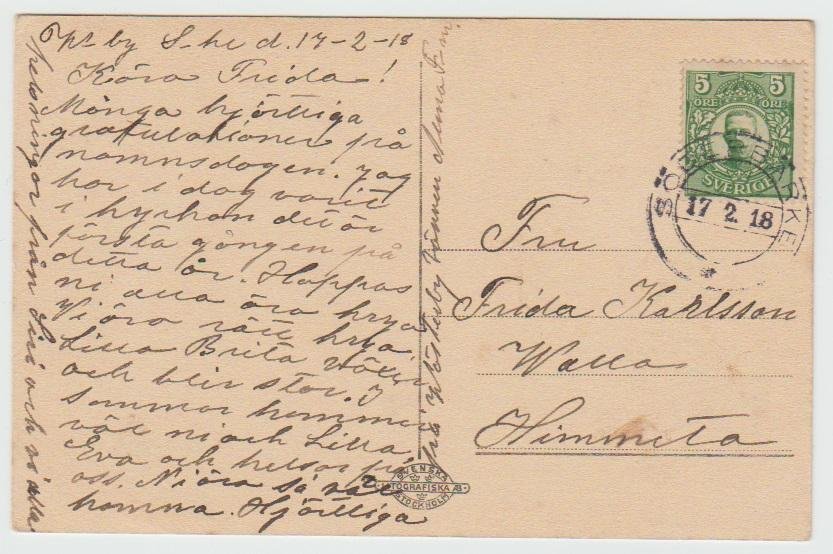 by S-ke d. 17-2-18
Kära Frida!
Många hjärtliga
gratulationer på
namnsdagen. Jag
har i dag varit
i kyrkan det är
första gången på
detta år. Hoppas
ni alla äro krya
Vi äro rätt krya,
Lilla Brita växer
och blir stor. I
sommar kommer
väl ni och Lilla
Eva och helsar på
oss. Ni äro så väl
komna. Hjärtliga
helsningar från Lisi och vi alla
vännen Anna
5 5
ÖRE ÖRE
SVERIGE
SÖDERBÄRKE
17 2. 18
Fru
Frida Karlsson
Walla
Himmeta
SVENSKA
LITOGRAFISKA AB
STOCKHOLM